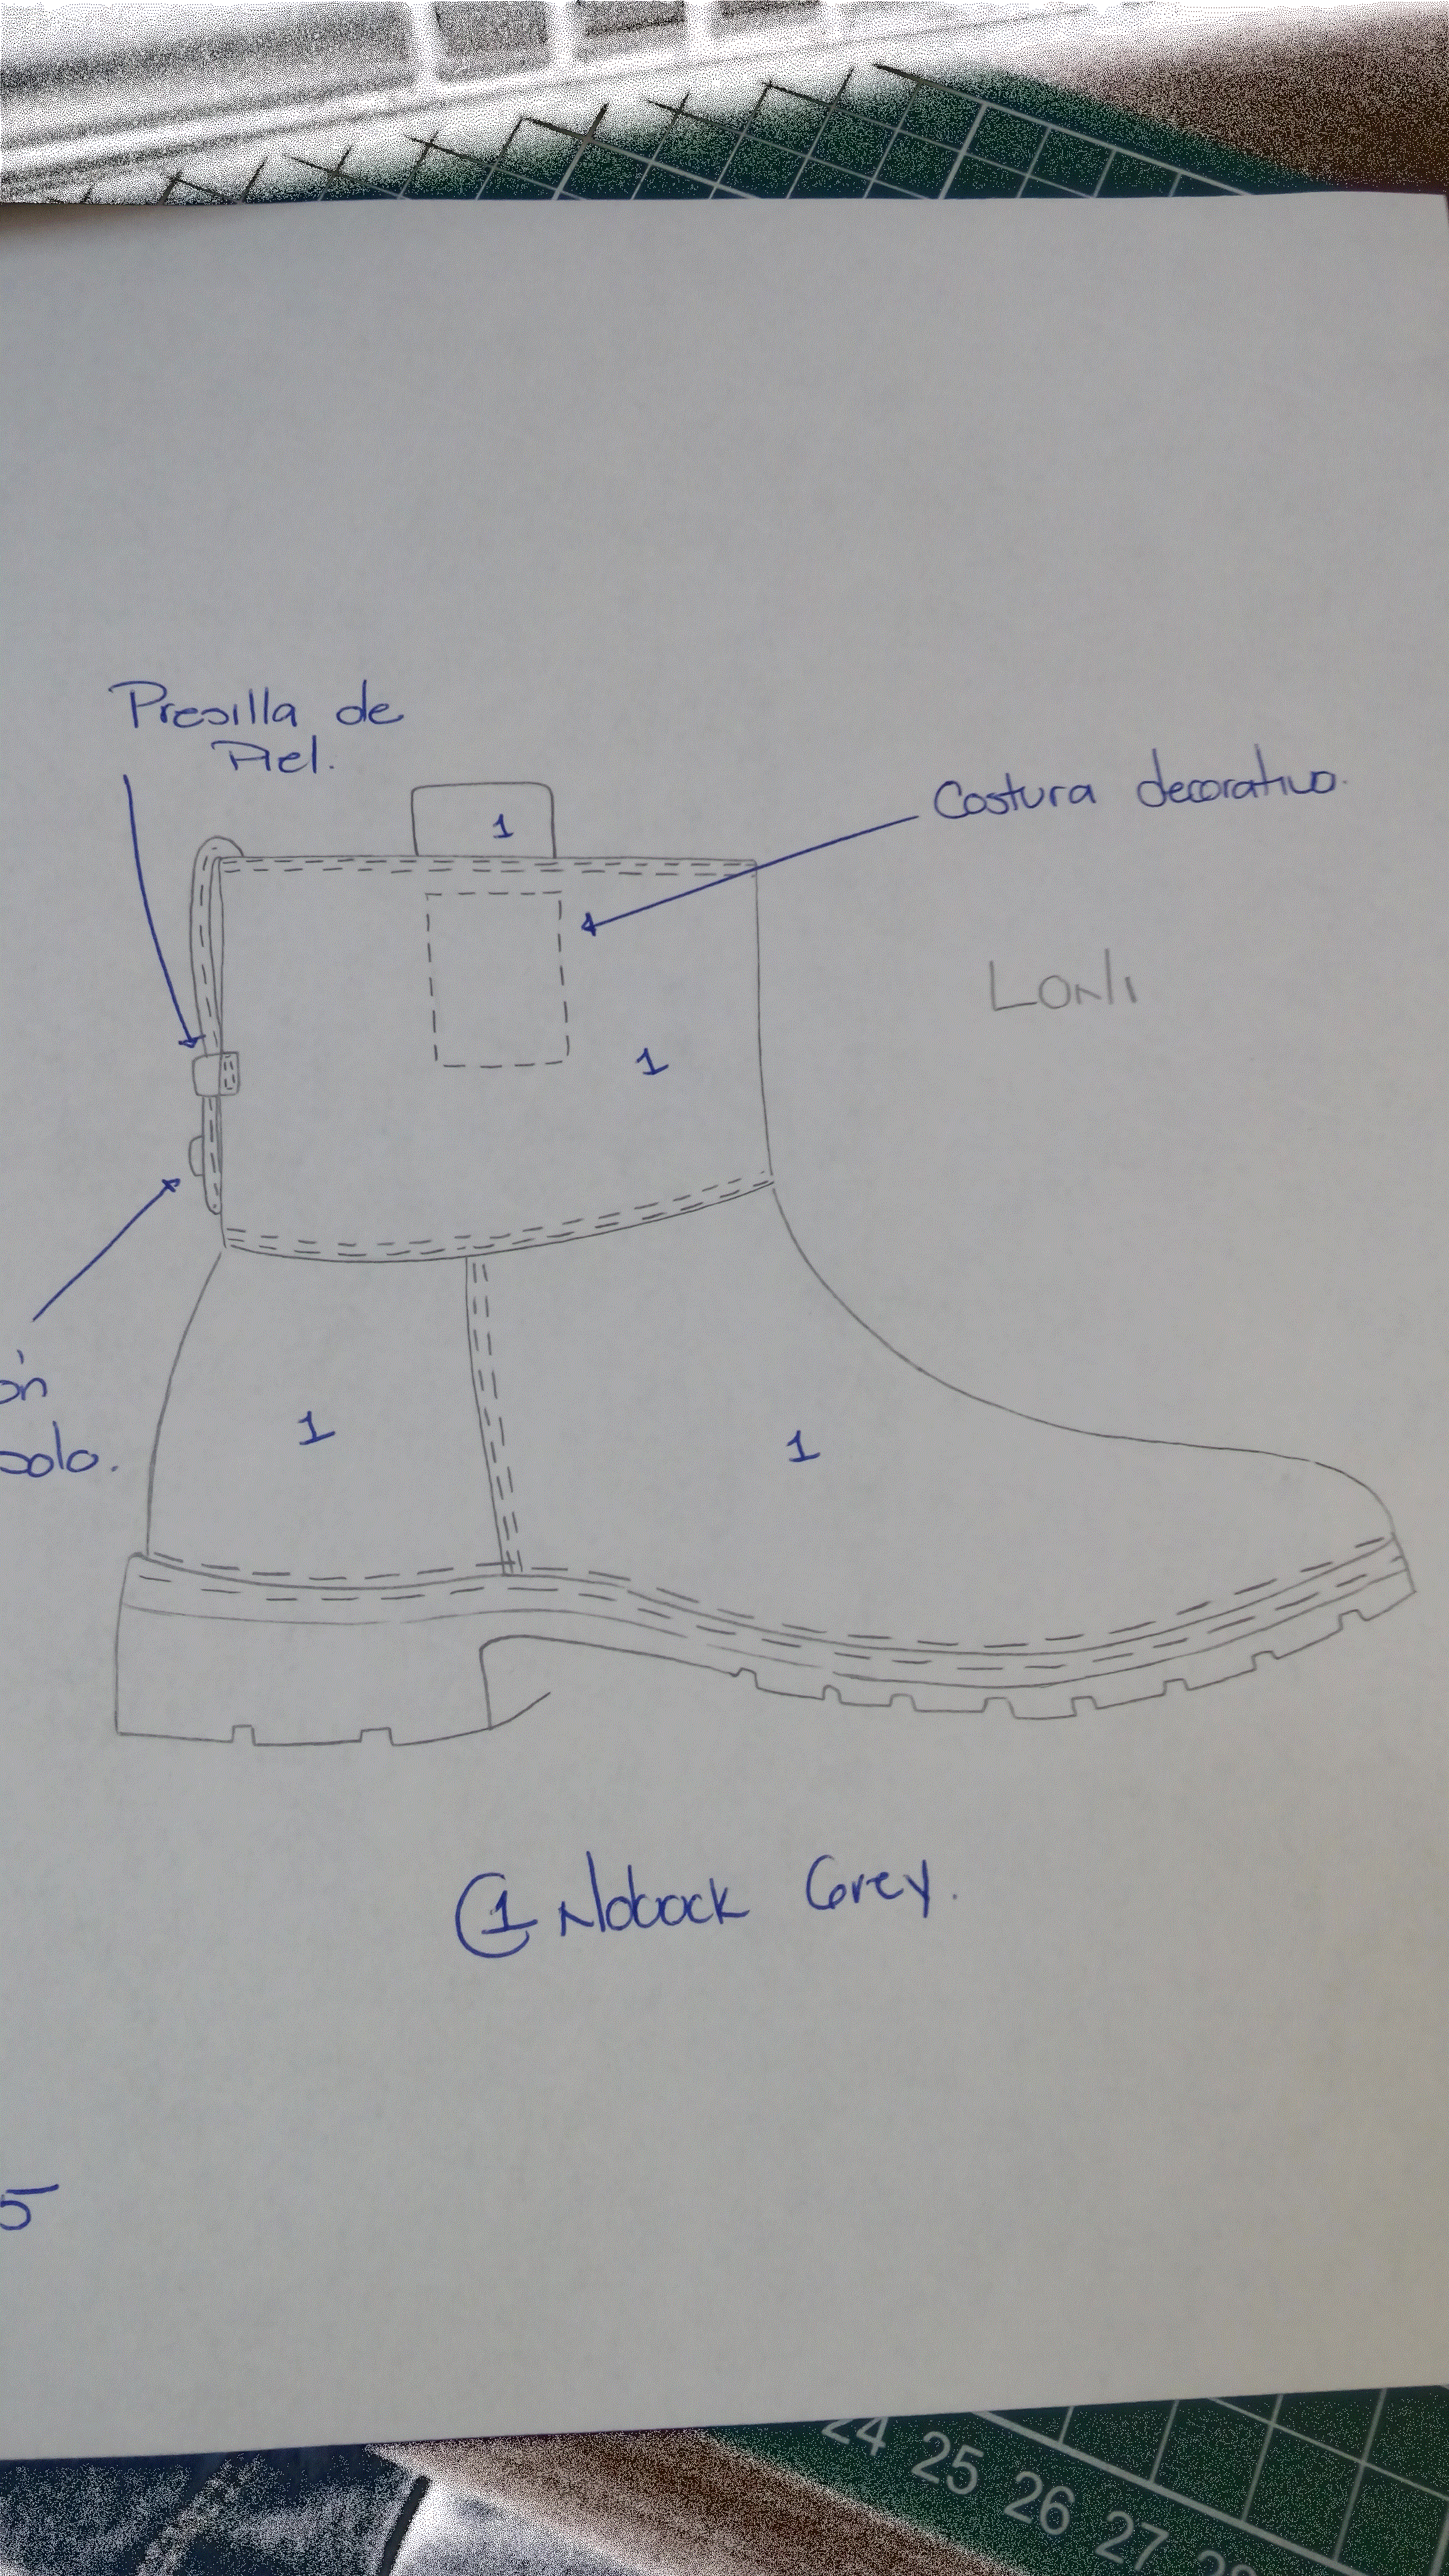 Presilla de
Piel.
Costura decorativa.
1
Lonli
1
ón
solo.
1
1
1 Noback Grey.
5
24 25 26 27 28